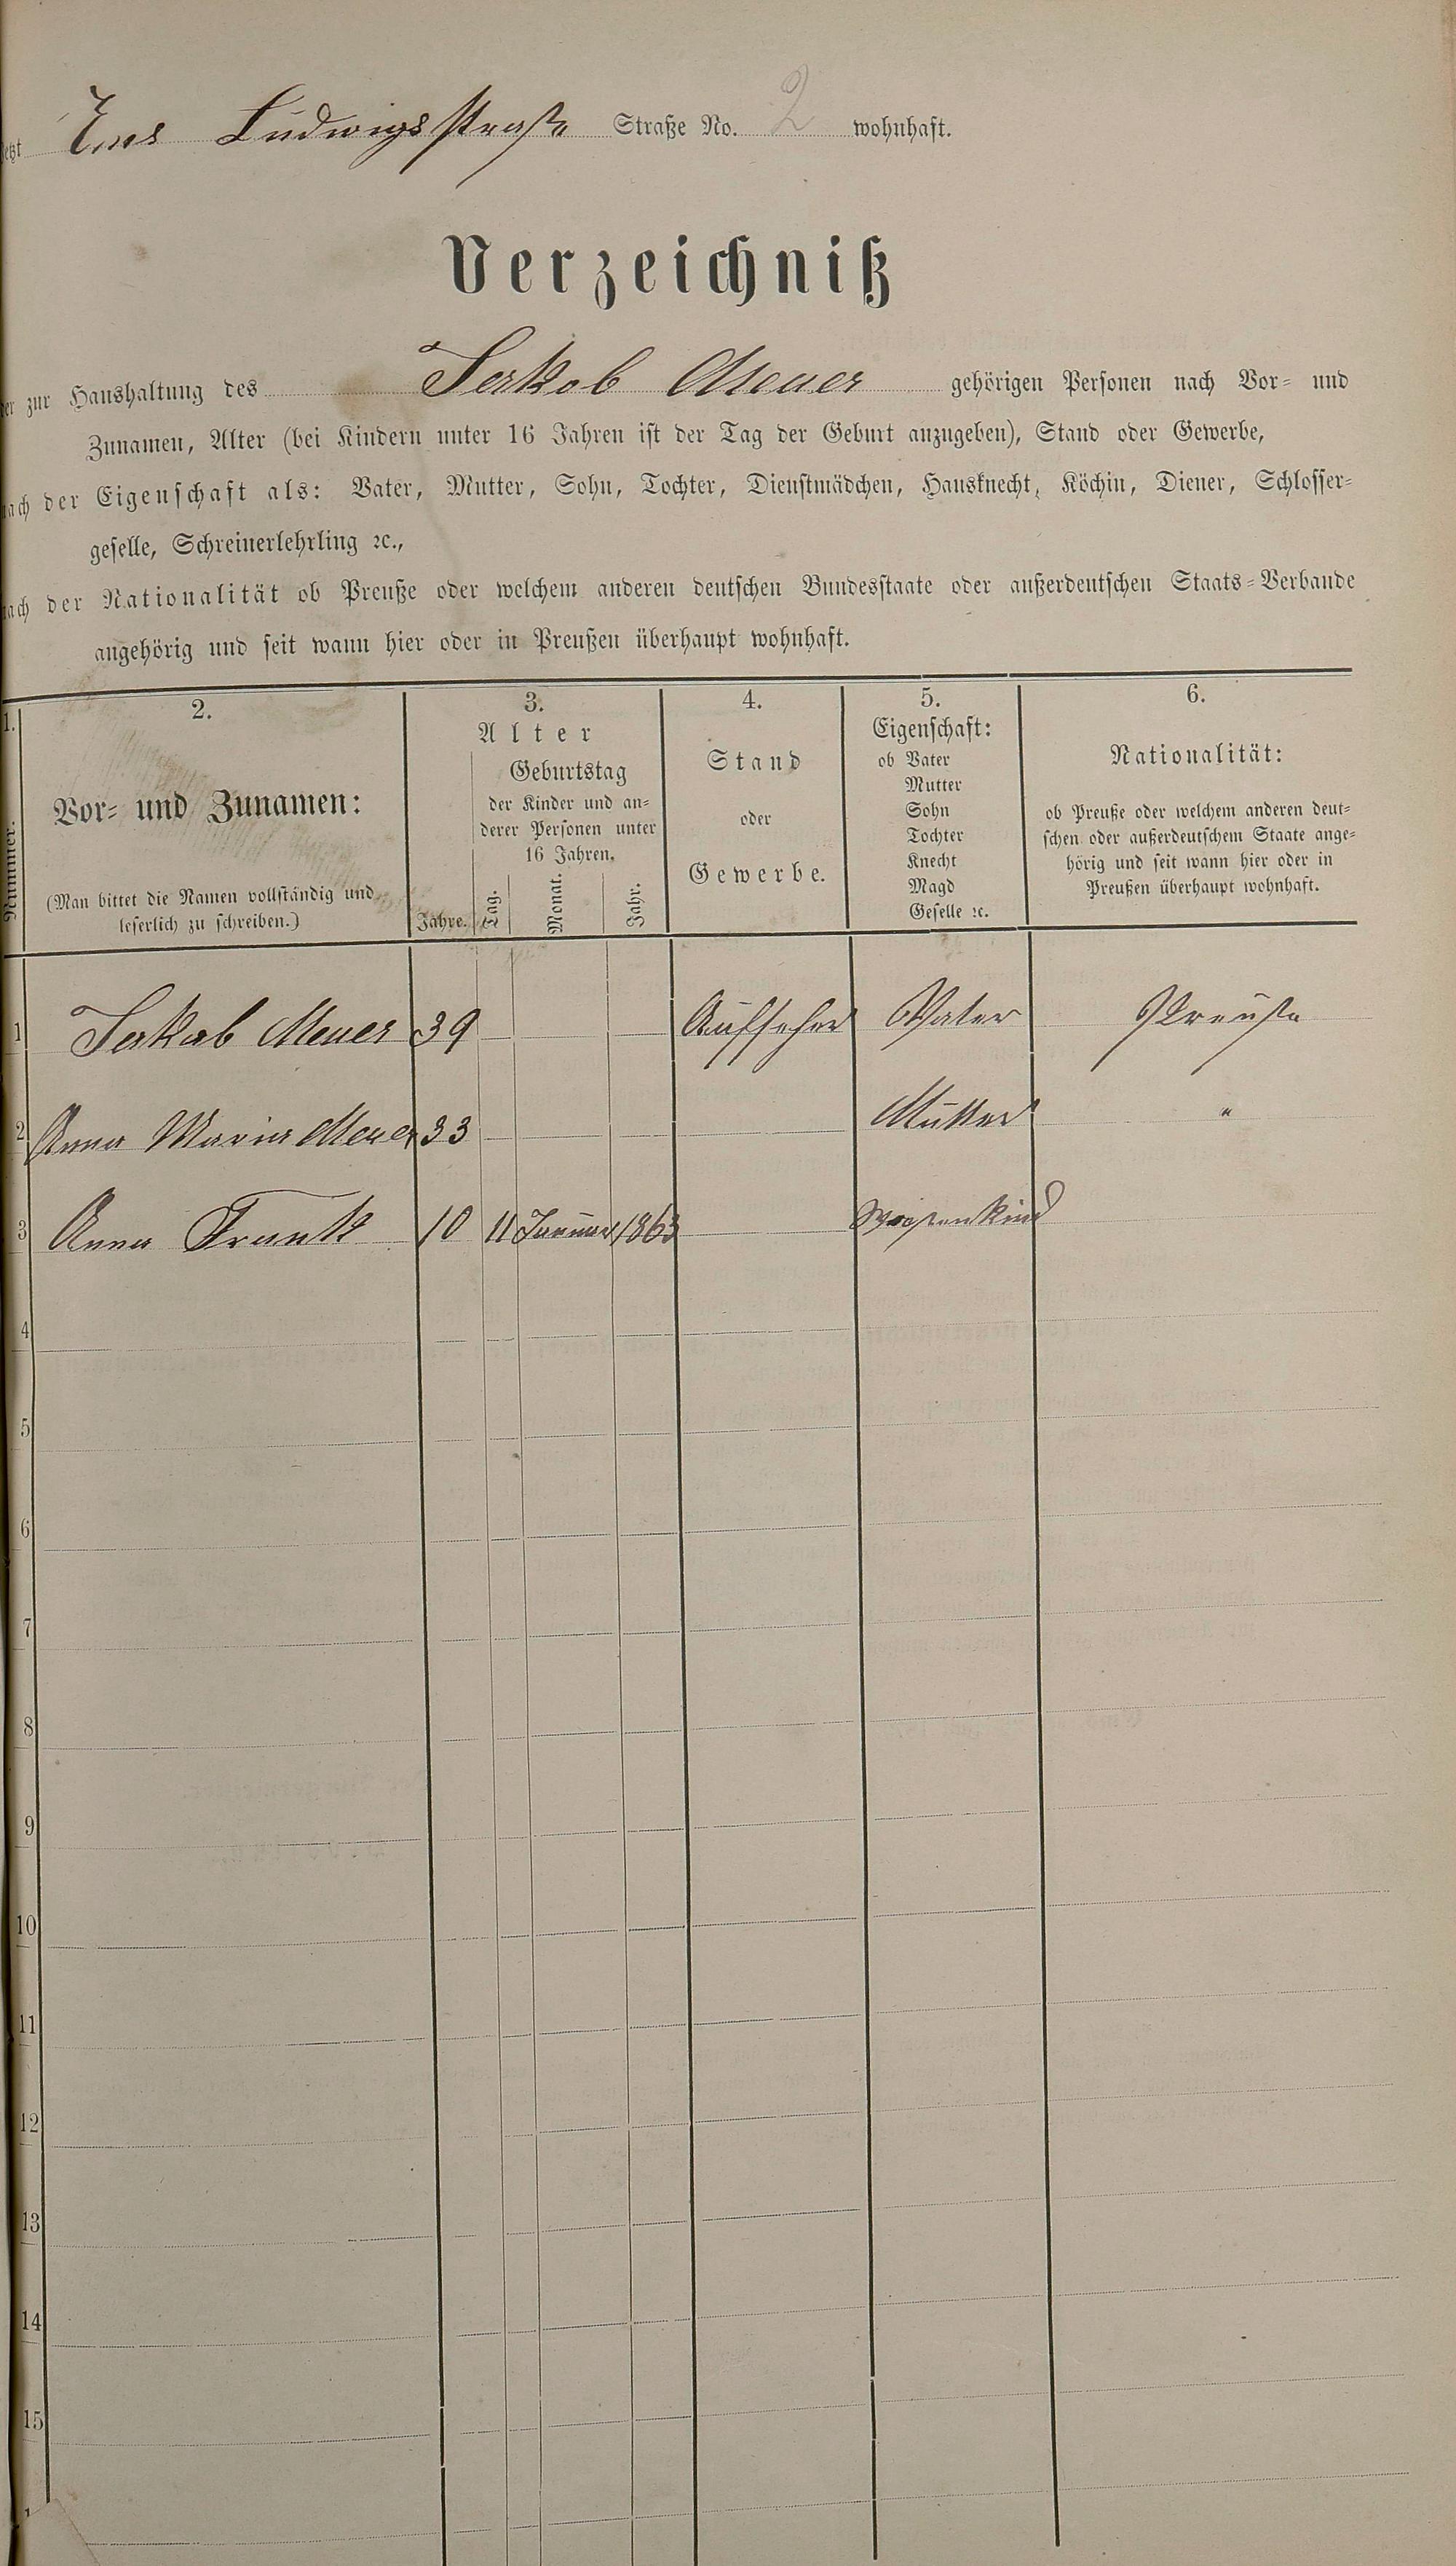 Ems Ludwigsstraße Straße No. 2 wohnhaft.
Verzeichniß
zur Haushaltung des Jakob Meuer gehörigen Personen nach Vor- und
Zunamen, Alter (bei Kindern unter 16 Jahren ist der Tag der Geburt anzugeben), Stand oder Gewerbe,
nach der Eigenschaft als: Vater, Mutter, Sohn, Tochter, Dienstmädchen, Hausknecht, Köchin, Diener, Schlosser-
geselle, Schreinerlehrling ꝛc.,
nach der Nationalität ob Preuße oder welchem anderen deutschen Bundesstaate oder außerdeutschen Staats-Verbande
angehörig und seit wann hier oder in Preußen überhaupt wohnhaft.
1.
Nummer.
2.
Vor- und Zunamen:
(Man bittet die Namen vollständig und
leserlich zu schreiben.)
3.
Alter
Geburtstag
der Kinder und an-
derer Personen unter
16 Jahren.
Jahre. Tag. Monat. Jahr.
4.
Stand
oder
Gewerbe.
5.
Eigenschaft:
ob Vater
Mutter
Sohn
Tochter
Knecht
Magd
Geselle ꝛc.
6.
Nationalität:
ob Preuße oder welchem anderen deut-
schen oder außerdeutschem Staate ange-
hörig und seit wann hier oder in
Preußen überhaupt wohnhaft.
1 Jakob Meuer 39 Aufseher Vater Preuße
2 Anna Maria Meuer 33 Mutter "
3 Anna Frank 10 11 Januar 1863 Waisenkind
4
5
6
7
8
9
10
11
12
13
14
15